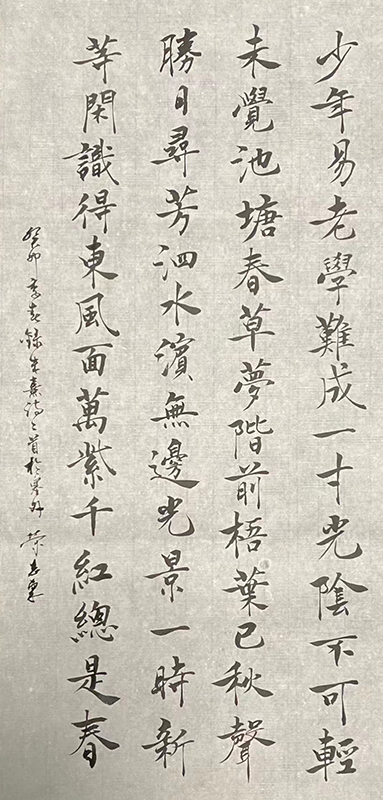 少年易老學難成一寸光陰不可輕
未覺池塘春草夢階前梧葉已秋聲
勝日尋芳泗水濱無邊光景一時新
等閑識得東風面萬紫千紅總是春
癸卯季春錄朱熹詩二首於